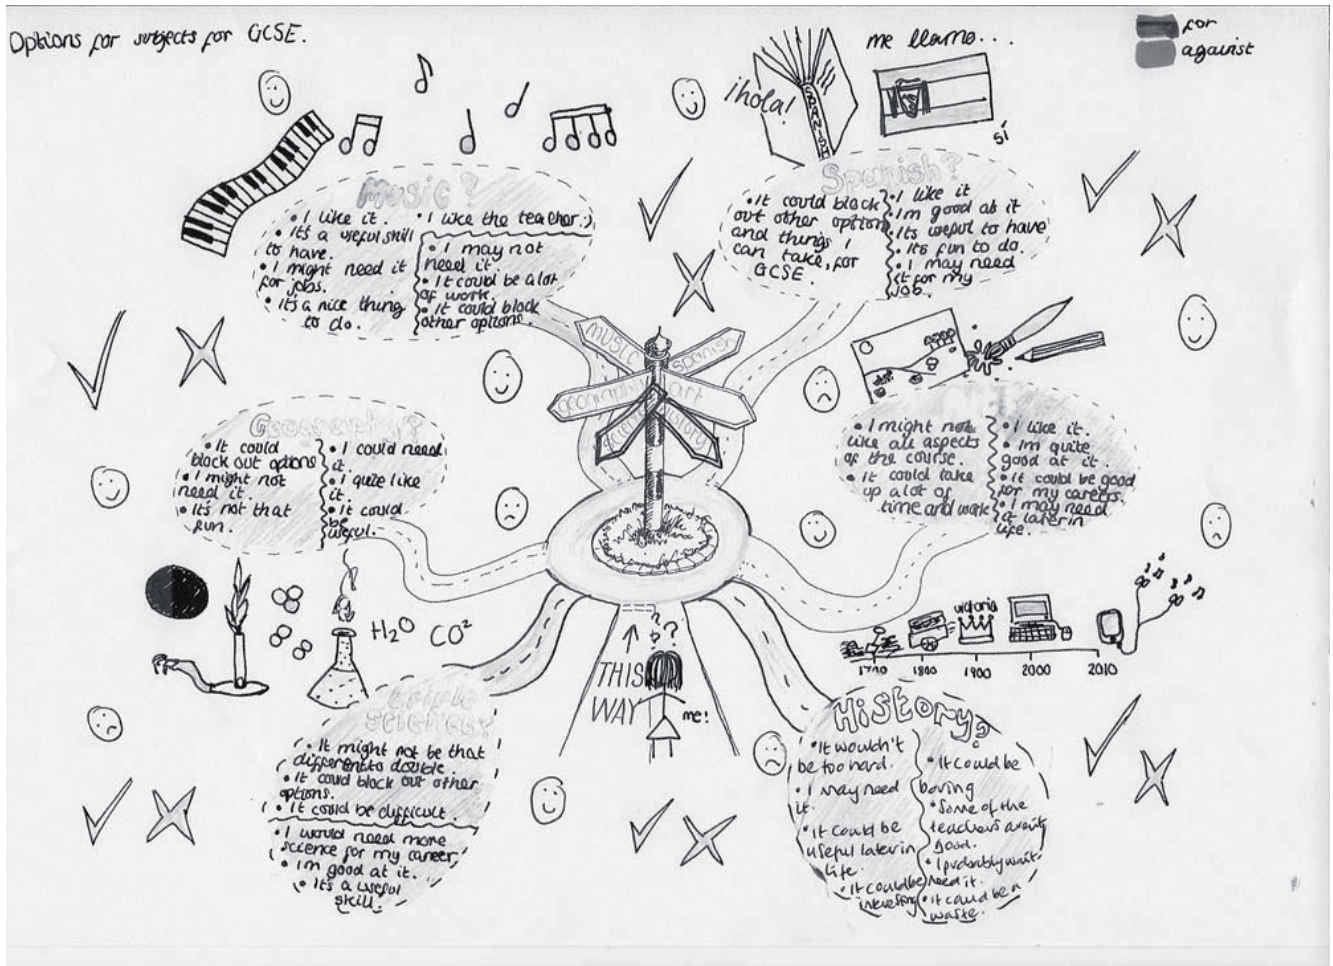 Options for subjects for GCSE.
for
against
me llamo...
¡hola!
SPANISH
sí
Music?
• I like it.
• Its a useful skill
to have.
• I might need it
for jobs.
• It's a nice thing
to do.
• I like the teacher :)
• I may not
need it.
• It could be a lot
of work.
• It could block
other options.
Spanish?
• It could block
out other options
and things I
can take, for
GCSE.
• I like it
• Im good at it
• Its useful to have
• Its fun to do.
• I may need
it for my
job.
MUSIC
spanish
geography
art
science
history
Geography?
• It could
block out options
• I might not
need it.
• It's not that
fun.
• I could need
it.
• I quite like
it.
• It could
be
useful.
• I might not
like all aspects
of the course.
• It could take
up a lot of
time and work
• I like it.
• Im quite
good at it.
• It could be good
for my careers.
• I may need
it later in
life.
H2O
CO2
THIS
WAY
? ? ?
me!
victoria
1700
1800
1900
2000
2010
triple
science?
• It might not be that
different to double.
• It could block out other
options.
• It could be difficult.
• I would need more
science for my career
• Im good at it.
• It's a useful
skill.
History?
• It wouldn't
be too hard.
• I may need
it.
• It could be
useful later in
life.
• It could be
interesting
• It could be
boring
• Some of the
teachers aren't
good.
• I probably won't
need it.
• It could be a
waste.